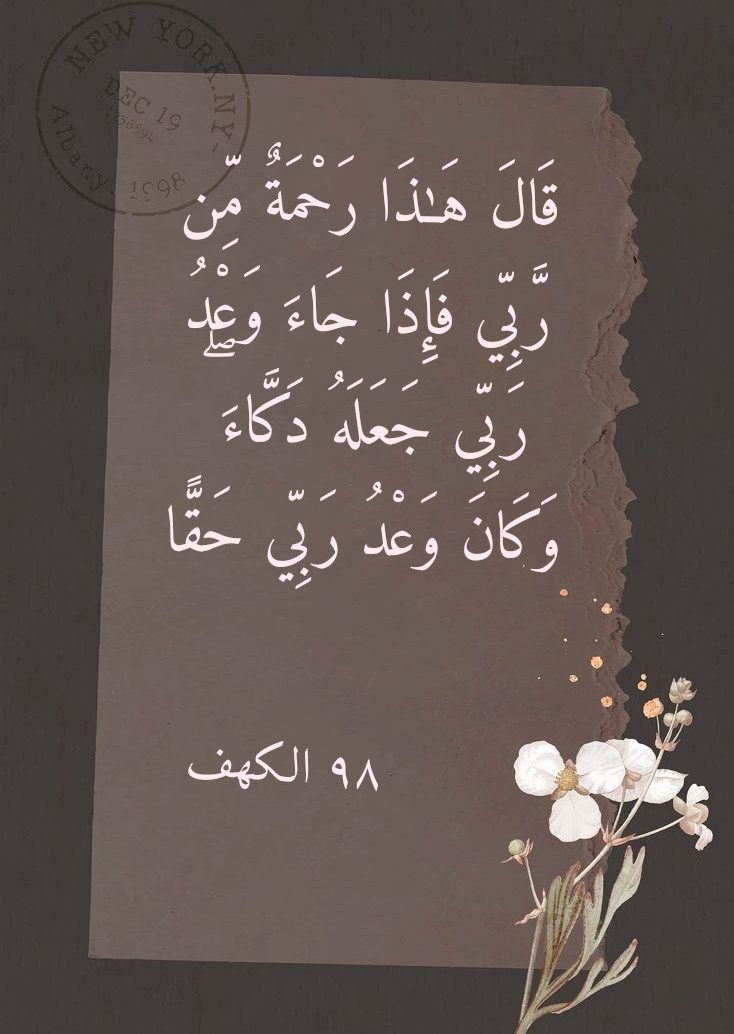 NEW YORK.NY-
DEC 19
Albany, 1998
قَالَ هَـٰذَا رَحْمَةٌ مِّن
رَّبِّي فَإِذَا جَاءَ وَعْدُ
رَبِّي جَعَلَهُ دَكَّاءَ ۖ
وَكَانَ وَعْدُ رَبِّي حَقًّا
٩٨ الكهف